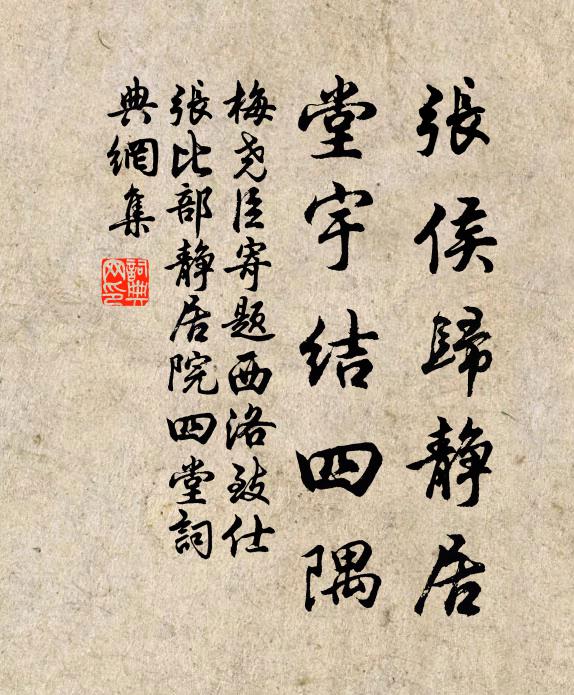 張侯歸静居
堂宇結四隅
梅尧臣寄題西洛致仕
張比部静居院四堂詞
典網集
詞典
网印